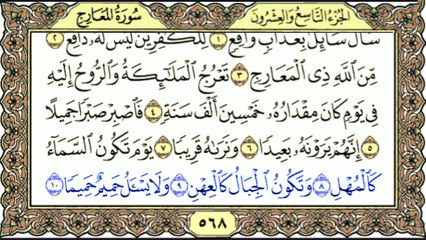 الجزء التاسع والعشرون
سورة المعارج
سَأَلَ سَآئِلُۢ بِعَذَابٖ وَاقِعٖ ١ لِّلۡكَٰفِرِينَ لَيۡسَ لَهُۥ دَافِعٞ ٢
مِّنَ ٱللَّهِ ذِي ٱلۡمَعَارِجِ ٣ تَعۡرُجُ ٱلۡمَلَٰٓئِكَةُ وَٱلرُّوحُ إِلَيۡهِ
فِي يَوۡمٖ كَانَ مِقۡدَارُهُۥ خَمۡسِينَ أَلۡفَ سَنَةٖ ٤ فَٱصۡبِرۡ صَبۡرٗا جَمِيلًا
٥ إِنَّهُمۡ يَرَوۡنَهُۥ بَعِيدٗا ٦ وَنَرَىٰهُ قَرِيبٗا ٧ يَوۡمَ تَكُونُ ٱلسَّمَآءُ
كَٱلۡمُهۡلِ ٨ وَتَكُونُ ٱلۡجِبَالُ كَٱلۡعِهۡنِ ٩ وَلَا يَسۡـَٔلُ حَمِيمٌ حَمِيمٗا ١٠
٥٦٨